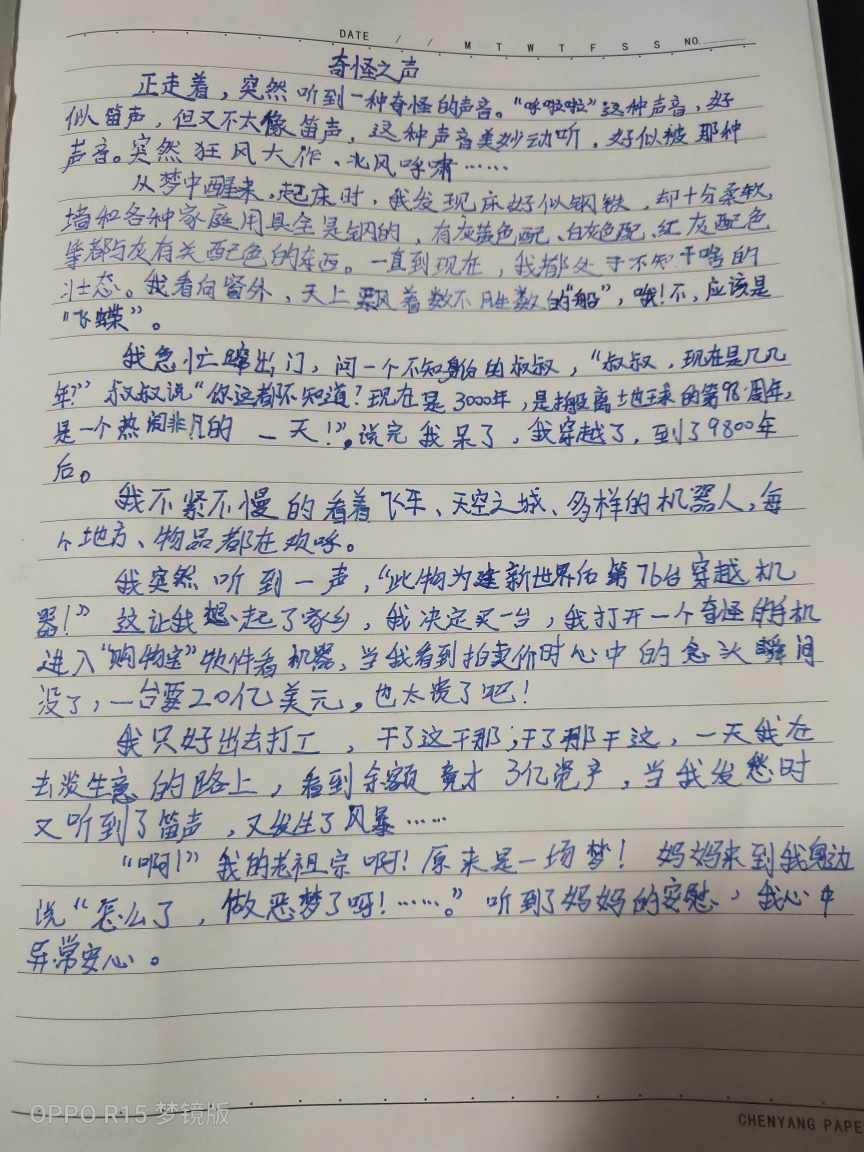 DATE / / M T W T F S S NO.
奇怪之声
正走着，突然听到一种奇怪的声音。“呼啦啦”这种声音，好
似笛声，但又不太像笛声，这种声音美妙动听，好似被那种
声音。突然狂风大作、北风呼啸……
从梦中醒来，起床时，我发现床好似钢铁，却十分柔软，
墙和各种家庭用具全是钢的，有灰黄色配、白灰色配、红灰配色
等都与灰有关配色的东西。一直到现在，我都处于不知干啥的
状态。我看向窗外，天上飘着数不胜数的“船”，哦！不，应该是
“飞蝶”。
我急忙蹿出门，问一个不知身份的叔叔，“叔叔，现在是几几
年？”叔叔说“你这都不知道？现在是3000年，是搬离地球的第98周年，
是一个热闹非凡的一天！”。说完我呆了，我穿越了，到了9800年
后。
我不紧不慢的看着飞车、天空之城、多样的机器人，每
个地方、物品都在欢呼。
我突然听到一声，“此物为建新世界后第76台穿越机
器！”这让我想起了家乡，我决定买一台，我打开一个奇怪的手机
进入“购物宝”软件看机器，当我看到拍卖价时心中的念头瞬间
没了，一台要20亿美元，也太贵了吧！
我只好出去打工，干了这干那；干了那干这，一天我在
去谈生意的路上，看到余额竟才3亿资产，当我发愁时
又听到了笛声，又发生了风暴……
“啊！”我的老祖宗啊！原来是一场梦！妈妈来到我身边
说“怎么了，做恶梦了呀！……。”听到了妈妈的安慰，我心中
异常安心。
OPPO R15 梦镜版
CHENYANG PAPE